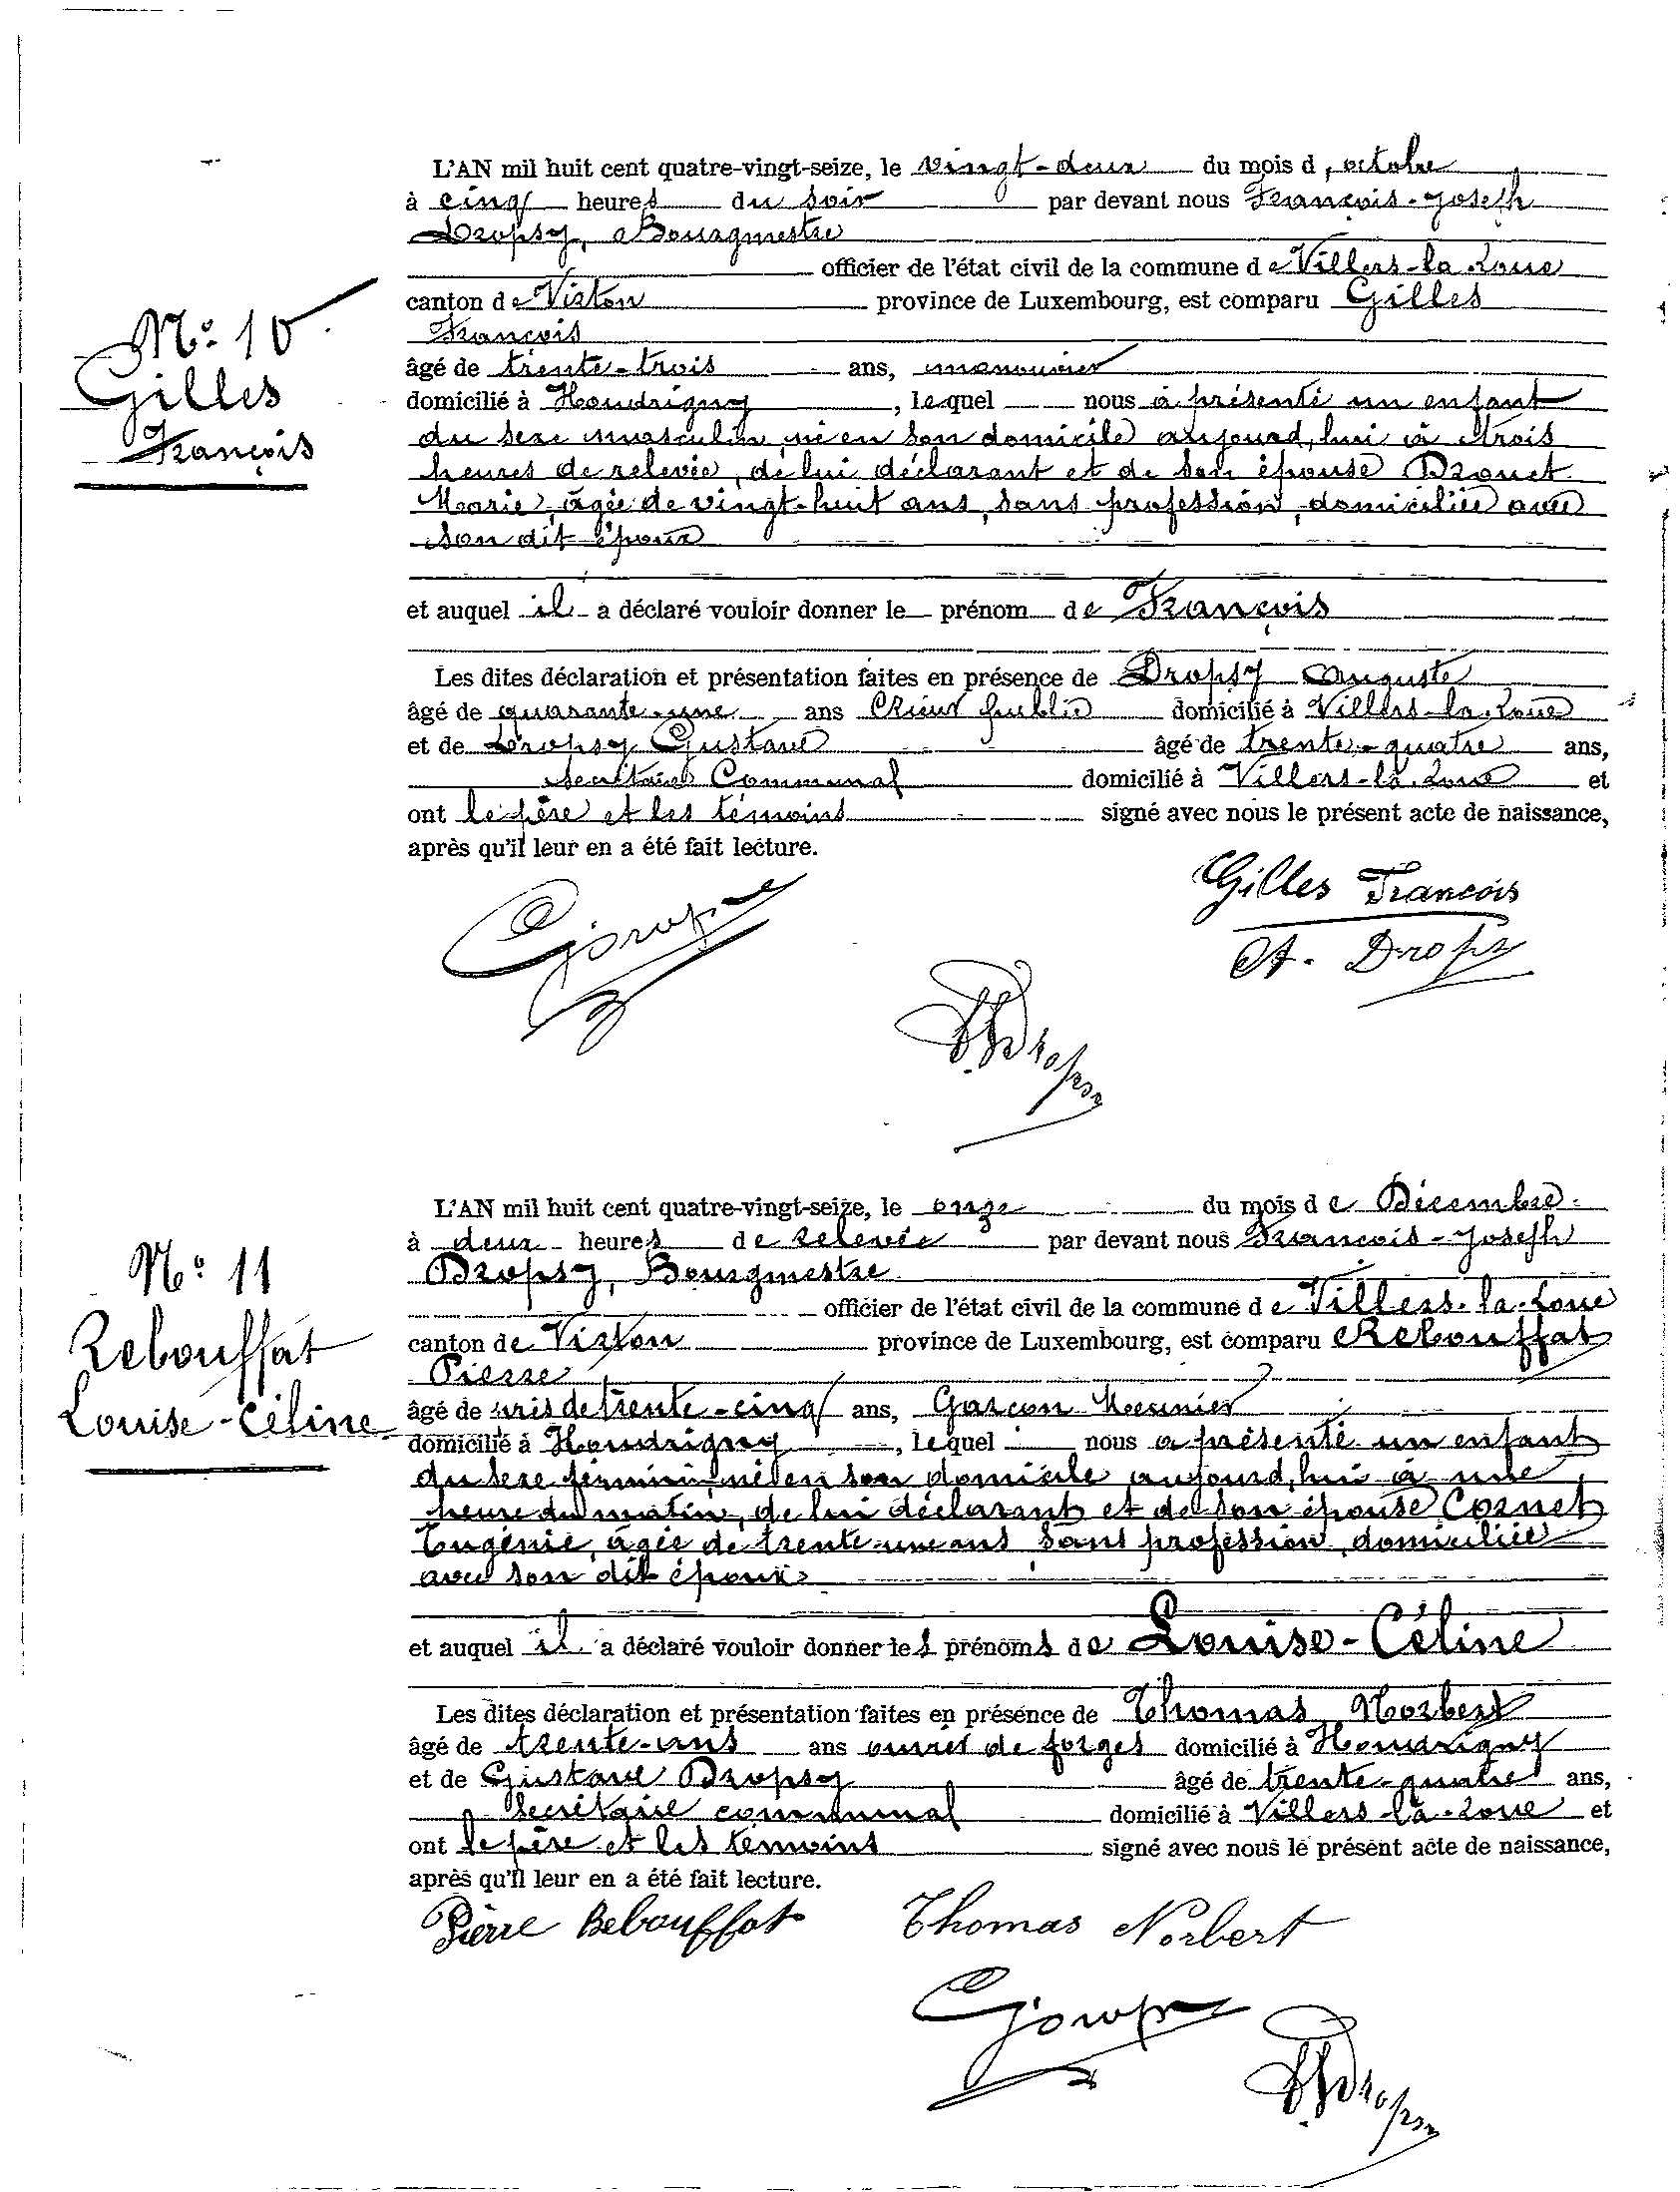 L'AN mil huit cent quatre-vingt-seize, le vingt-deux du mois d'octobre
à cinq heures du soir par devant nous François-Joseph
Dropsy, Bourgmestre
officier de l'état civil de la commune de Villers-la-Loue
canton de Virton province de Luxembourg, est comparu Gilles
François
âgé de trente-trois ans, manouvrier
domicilié à Houdrigny, lequel nous a présenté un enfant
du sexe masculin, né en son domicile aujourd'hui à trois
heures de relevée, de lui déclarant et de son épouse Drouet
Marie, âgée de vingt-huit ans, sans profession, domiciliée avec
son dit époux
et auquel il a déclaré vouloir donner le prénom de François
Les dites déclaration et présentation faites en présence de Dropsy Auguste
âgé de quarante-une ans Crieur public domicilié à Villers-la-Loue
et de Dropsy Gustave âgé de trente-quatre ans,
secrétaire Communal domicilié à Villers-la-Loue et
ont le père et les témoins signé avec nous le présent acte de naissance,
après qu'il leur en a été fait lecture.
N° 10
Gilles
François
Gilles François
A. Dropsy
GDropsy
Dropsy
L'AN mil huit cent quatre-vingt-seize, le onze du mois de Décembre
à deux heures de relevée par devant nous François-Joseph
Dropsy, Bourgmestre
officier de l'état civil de la commune de Villers-la-Loue
canton de Virton province de Luxembourg, est comparu Rebouffat
Pierre
âgé de trente-cinq ans, Garçon Meunier
domicilié à Houdrigny, lequel nous a présenté un enfant
du sexe féminin, né en son domicile aujourd'hui à une
heure du matin, de lui déclarant et de son épouse Cornet
Eugénie, âgée de trente-une ans, sans profession, domiciliée
avec son dit époux
et auquel il a déclaré vouloir donner les prénoms de Louise-Céline
Les dites déclaration et présentation faites en présence de Thomas Norbert
âgé de trente-uns ans ouvrier de forges domicilié à Houdrigny
et de Gustave Dropsy âgé de trente-quatre ans,
secrétaire communal domicilié à Villers-la-Loue et
ont le père et les témoins signé avec nous le présent acte de naissance,
après qu'il leur en a été fait lecture.
N° 11
Rebouffat
Louise-Céline
Pierre Rebouffat Thomas Norbert
GDropsy
Dropsy